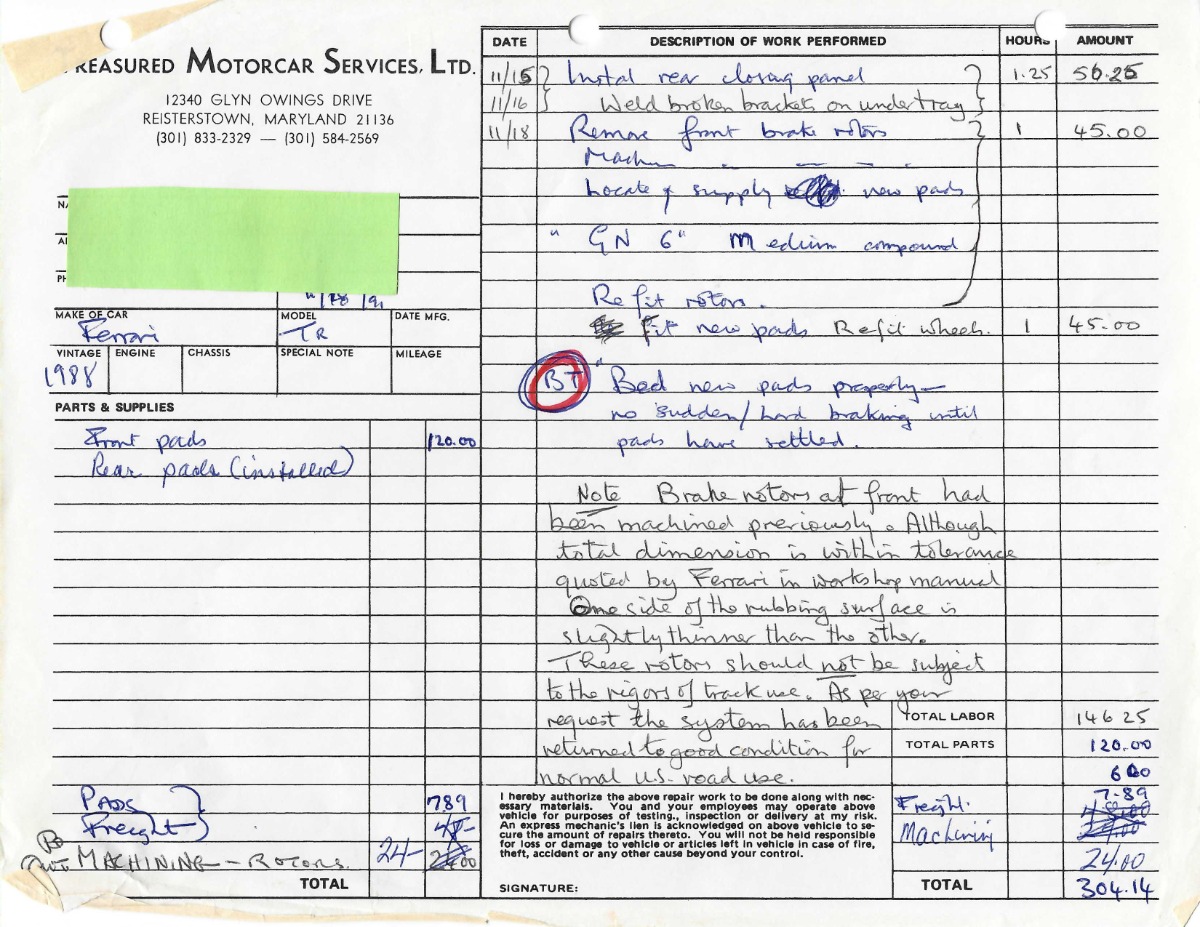 REASURED MOTORCAR SERVICES, LTD.
12340 GLYN OWINGS DRIVE
REISTERSTOWN, MARYLAND 21136
(301) 833-2329 — (301) 584-2569
NA
PH
11/18/91
MAKE OF CAR
Ferrari
MODEL
TR
DATE MFG.
VINTAGE
1988
ENGINE
CHASSIS
SPECIAL NOTE
MILEAGE
PARTS & SUPPLIES
Front pads 120.00
Rear pads (installed)
PADS 789
Freight
MACHINING - ROTORS. 24-
TOTAL
DATE DESCRIPTION OF WORK PERFORMED HOURS AMOUNT
11/15 Instal rear closing panel 1.25 56.25
11/16 Weld broken brackets on undertray
11/18 Remove front brake rotors 1 45.00
Machin
Locate & supply new pads
"GN 6" Medium compound
Refit rotors.
Fit new pads Refit wheels. 1 45.00
BT "Bed new pads properly—
no sudden/hard braking until
pads have settled.
Note Brake rotors at front had
been machined previously. Although
total dimension is within tolerance
quoted by Ferrari in workshop manual
One side of the rubbing surface is
slightly thinner than the other.
These rotors should not be subject
to the rigors of track use. As per your
request the system has been
returned to good condition for
normal U.S. road use.
TOTAL LABOR 146 25
TOTAL PARTS 120.00
6 00
Freight. 7.89
Machining 24.00
I hereby authorize the above repair work to be done along with nec-
essary materials. You and your employees may operate above
vehicle for purposes of testing, inspection or delivery at my risk.
An express mechanic's lien is acknowledged on above vehicle to se-
cure the amount of repairs thereto. You will not be held responsible
for loss or damage to vehicle or articles left in vehicle in case of fire,
theft, accident or any other cause beyond your control.
SIGNATURE:
TOTAL 304.14